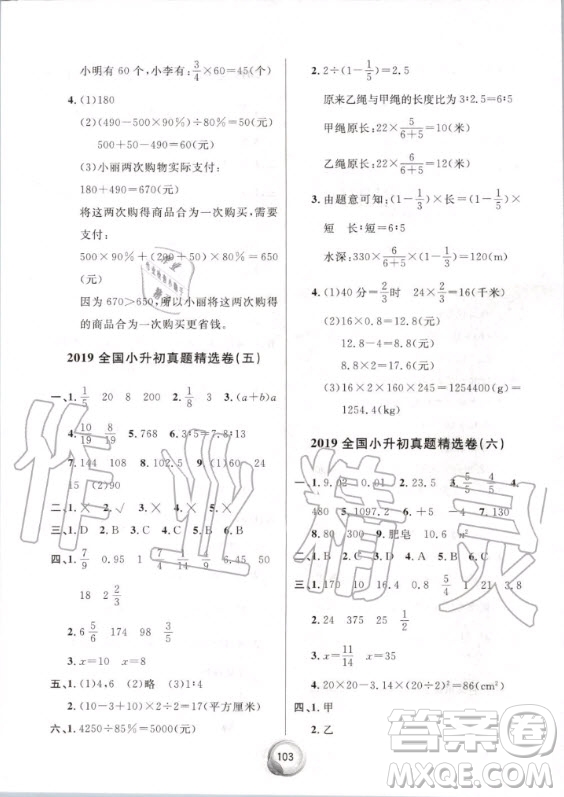 小明有60个,小李有:3/4×60=45(个)
4.(1)180
(2)(490-500×90%)÷80%=50(元)
500+50-490=60(元)
(3)小丽两次购物实际支付:
180+490=670(元)
将这两次购得商品合为一次购买,需要
支付:
500×90%+(200+50)×80%=650
(元)
因为670>650,所以小丽将这两次购得
的商品合为一次购买更省钱。
2019全国小升初真题精选卷(五)
一、1.1/5 20 8 200 2.1/8 3.(a+b)a
4.10/19 8/19 5.768 6.3:5=7:
7.144 108 8. 9.102.5 10.(1)60
15 (2)90
二、1.× 2.√
三、1.D 2.B 3.A 4.B 5.D
四、1.7/9 0.95 1 6.45 50
18 2 2/3
2.6 5/6 174 98 33
3.x=10 x=8
五、1.(1)4,6 (2)略 (3)略
2.7×10÷2-18=17(平方厘米)
六、1.4250÷85%=5000(元)
2.2÷(1-1/5)=2.5
原来乙绳与甲绳的长度比为3:2.5=6:5
甲绳原:22×5/(6+5)=10(米)
乙绳原:22×6/(6+5)=12(米)
3.由题意可知:(1-1/3)×长=(1-1/5)×
短 长:短=6:5
水深:330×6/(6+5)×(1-1/3)=120(m)
4.(1)40分=2/3时 24×2/3=16(千米)
(2)16×0.8=12.8
12.8÷4=3.2
(3)16×2×10×1×3920=1254400(g)
1254400g=1254.4(kg)
2019全国小升初真题精选卷(六)
一、1.9.02 0.01 2.23.5 3.5/5 4/5 4.
480 0.0098 5.92 6.+5 -4 7.130
8.80 300 9.肥皂 10.15
二、1.× 2.√ 3.× 4.× 5.×
三、1.170 10 16.4 0.8 1 27 3.8
2.24 375 25 1/2
3.x=11/14 x=35
4.20×20-3.14×(20÷2)²=86(cm²)
四、1.甲
2.乙
103
作业精灵
答案圈
MXQE.COM